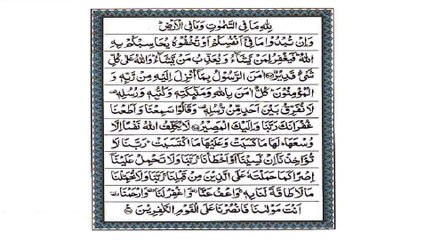 لِلّٰهِ مَا فِی السَّمٰوٰتِ وَمَا فِی الْاَرْضِ ؕ
وَاِنْ تُبْدُوْا مَا فِیْۤ اَنْفُسِكُمْ اَوْ تُخْفُوْهُ یُحَاسِبْكُمْ بِهِ
اللّٰهُ ؕ فَیَغْفِرُ لِمَنْ یَّشَآءُ وَیُعَذِّبُ مَنْ یَّشَآءُ ؕ وَاللّٰهُ عَلٰی كُلِّ
شَیْءٍ قَدِیْرٌ ۝ اٰمَنَ الرَّسُوْلُ بِمَاۤ اُنْزِلَ اِلَیْهِ مِنْ رَّبِّهٖ وَ
الْمُؤْمِنُوْنَ ؕ كُلٌّ اٰمَنَ بِاللّٰهِ وَمَلٰٓئِكَتِهٖ وَكُتُبِهٖ وَرُسُلِهٖ ۟
لَا نُفَرِّقُ بَیْنَ اَحَدٍ مِّنْ رُّسُلِهٖ ۟ وَقَالُوْا سَمِعْنَا وَاَطَعْنَا
غُفْرَانَكَ رَبَّنَا وَاِلَیْكَ الْمَصِیْرُ ۝ لَا یُكَلِّفُ اللّٰهُ نَفْسًا اِلَّا
وُسْعَهَا ؕ لَهَا مَا كَسَبَتْ وَعَلَیْهَا مَا اكْتَسَبَتْ ؕ رَبَّنَا لَا
تُؤَاخِذْنَاۤ اِنْ نَّسِیْنَاۤ اَوْ اَخْطَاْنَا ۚ رَبَّنَا وَلَا تَحْمِلْ عَلَیْنَاۤ
اِصْرًا كَمَا حَمَلْتَهٗ عَلَی الَّذِیْنَ مِنْ قَبْلِنَا ۚ رَبَّنَا وَلَا تُحَمِّلْنَا
مَا لَا طَاقَةَ لَنَا بِهٖ ۚ وَاعْفُ عَنَّا ۥ وَاغْفِرْ لَنَا ۥ وَارْحَمْنَا ۥ
اَنْتَ مَوْلٰىنَا فَانْصُرْنَا عَلَی الْقَوْمِ الْكٰفِرِیْنَ ۝